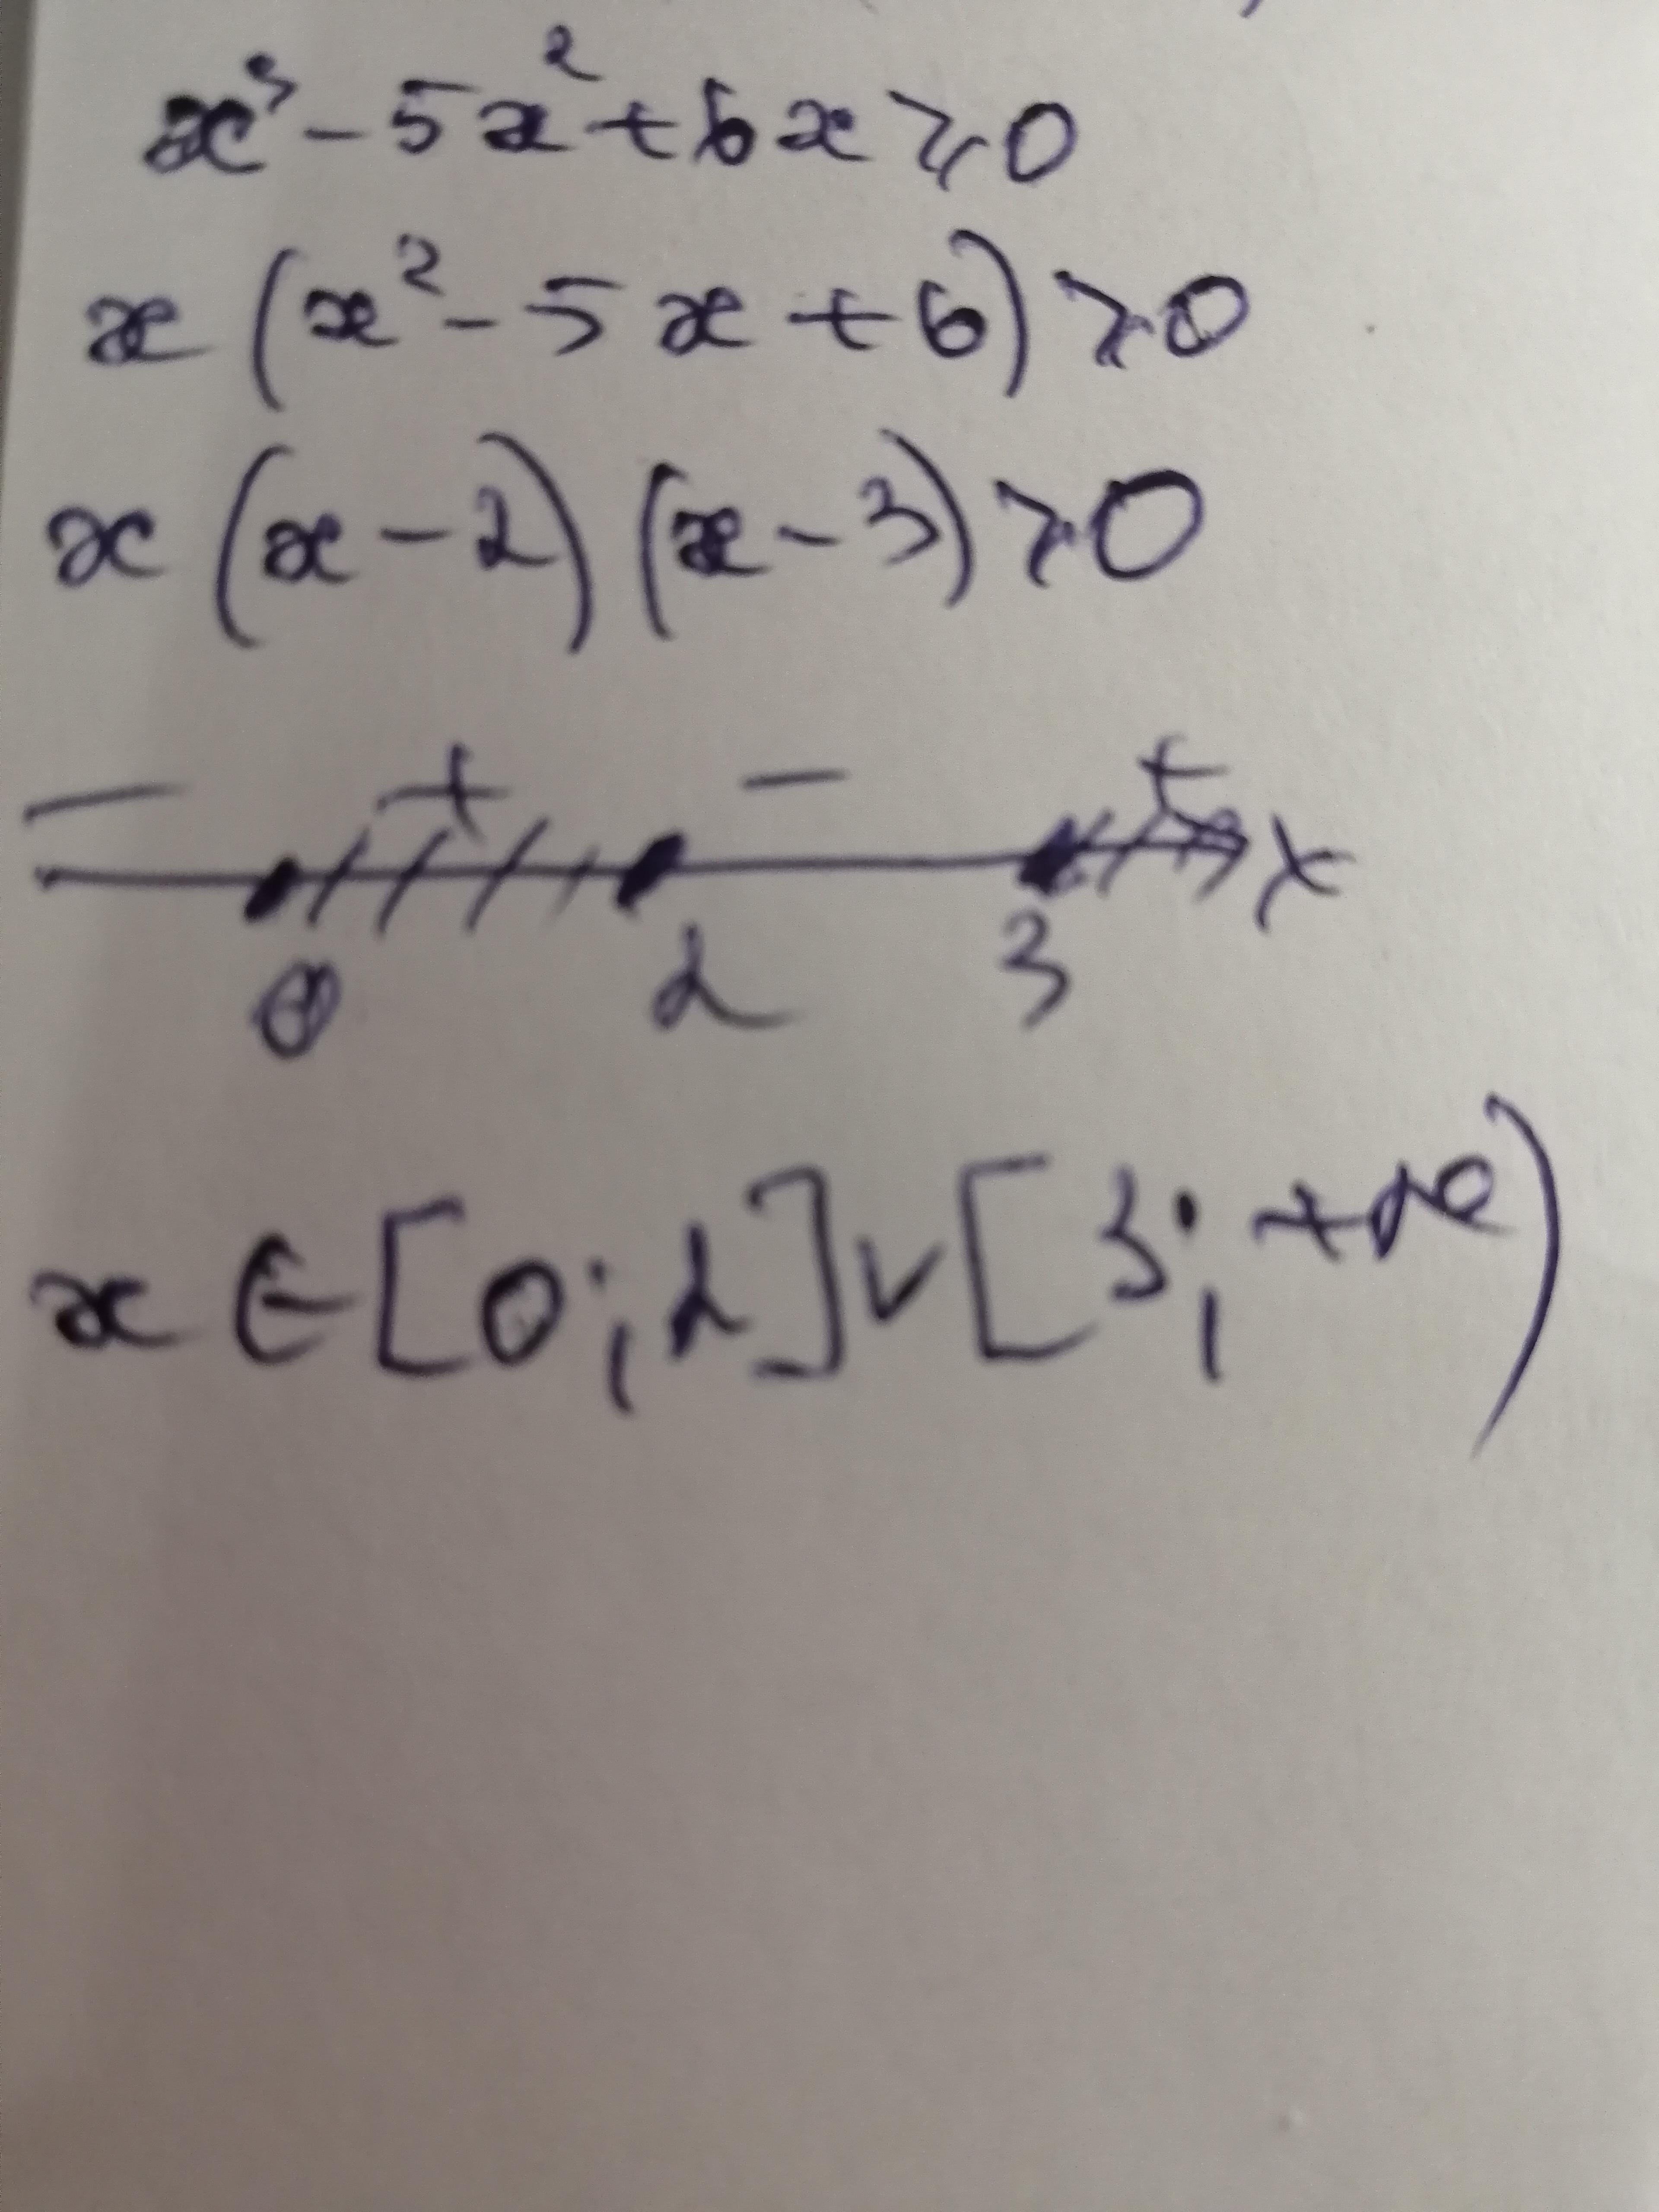 x³ - 5x² + 6x ⩾ 0
x (x² - 5x + 6) ⩾ 0
x (x - 2) (x - 3) ⩾ 0
− + − +
0 2 3 x
x ∈ [0; 2] ∪ [3; +∞)